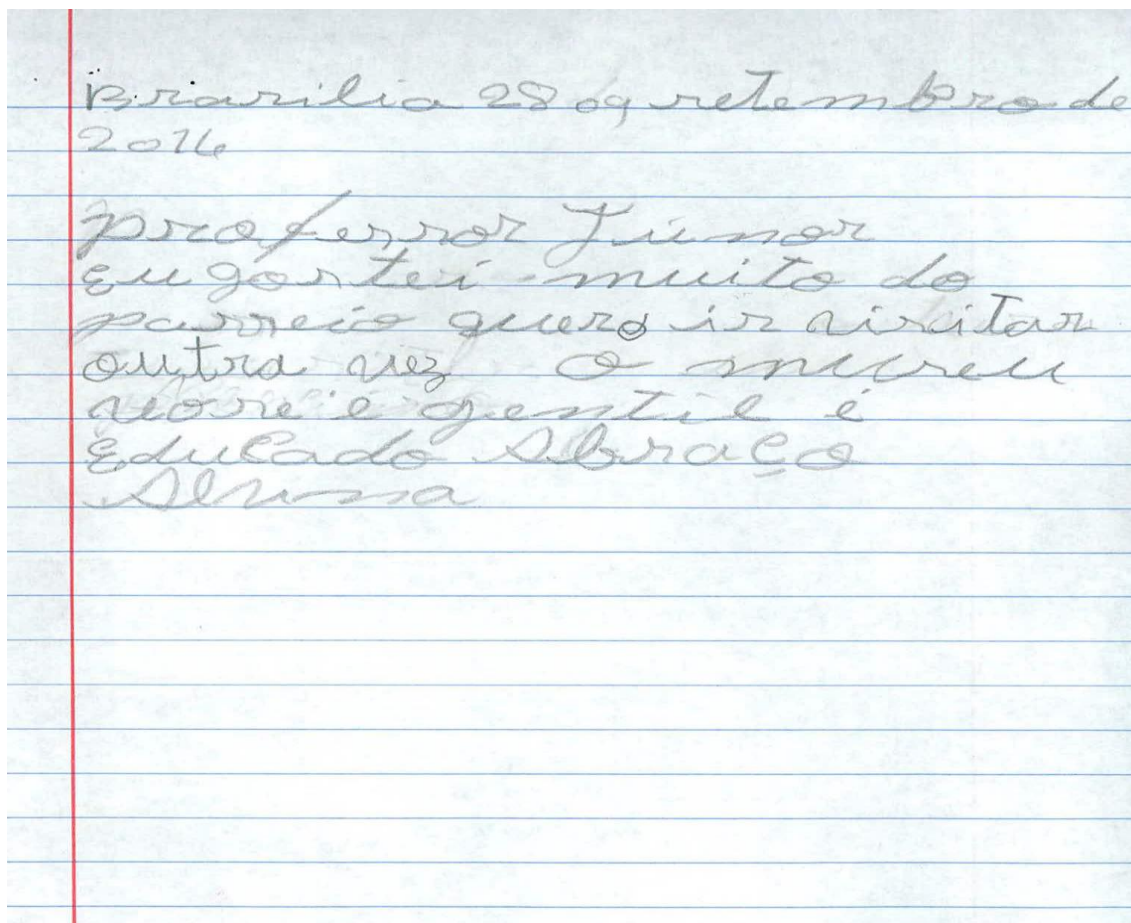 Brasilia 28 09 setembro de
2016
professor Júnor
Eu gostei muito do
passeio quero ir visitar
outra vez o museu
vose é gentil é
Educado Abraço
Aluna